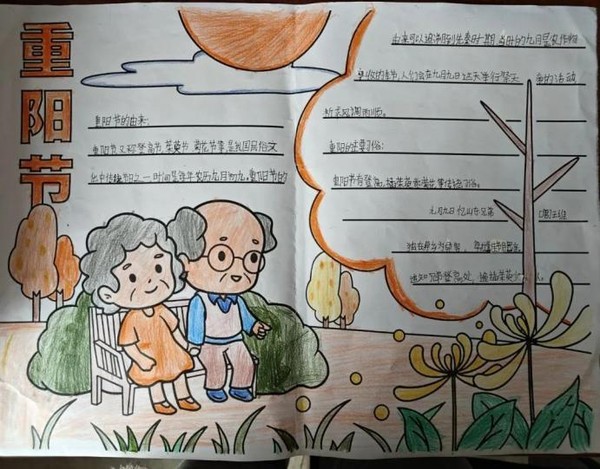 重阳节
重阳节的由来:
重阳节又称登高节、茱萸节、菊花节等,是我国民俗文
化中传统节日之一,时间是每年农历九月初九,重阳节的
由来可以追溯到先秦时期,当时的九月是农作物
丰收的季节,人们会在九月九日这天举行祭天 的活动
祈求风调雨顺。
重阳的主要习俗:
重阳节有登高、插茱萸
九月九日忆山东兄弟
独在异乡为异客,每逢佳节倍思亲
遥知兄弟登高处,遍插茱萸少一人